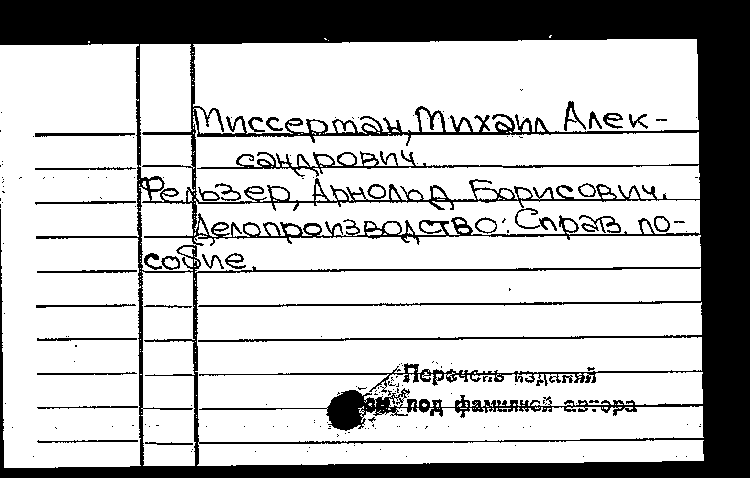 Миссерман, Михаил Алек-
сандрович.
Фельзер, Арнольд Борисович.
Делопроизводство: Справ. по-
собие.
Перечень изданий
см. под фамилией автора